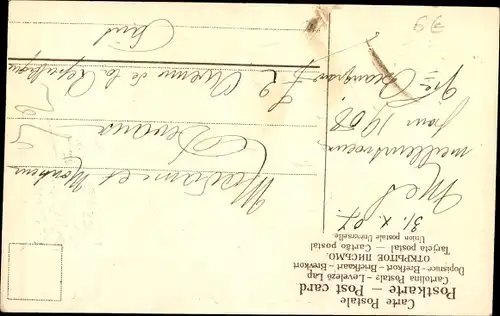 Carte Postale
Postkarte — Post card
Cartolina Postale — Levelező Lap
Dopisnice — Brefkort — Briefkaart — Brevkort
ОТКРЫТОЕ ПИСЬМО.
Tarjeta postal — Cartão postal
Union postale Universelle.
31. X. 07.
Mes
meilleurs voeux
pour 1908.
Madame et Monsieur
Devaux
52 Avenue de la République
Paris